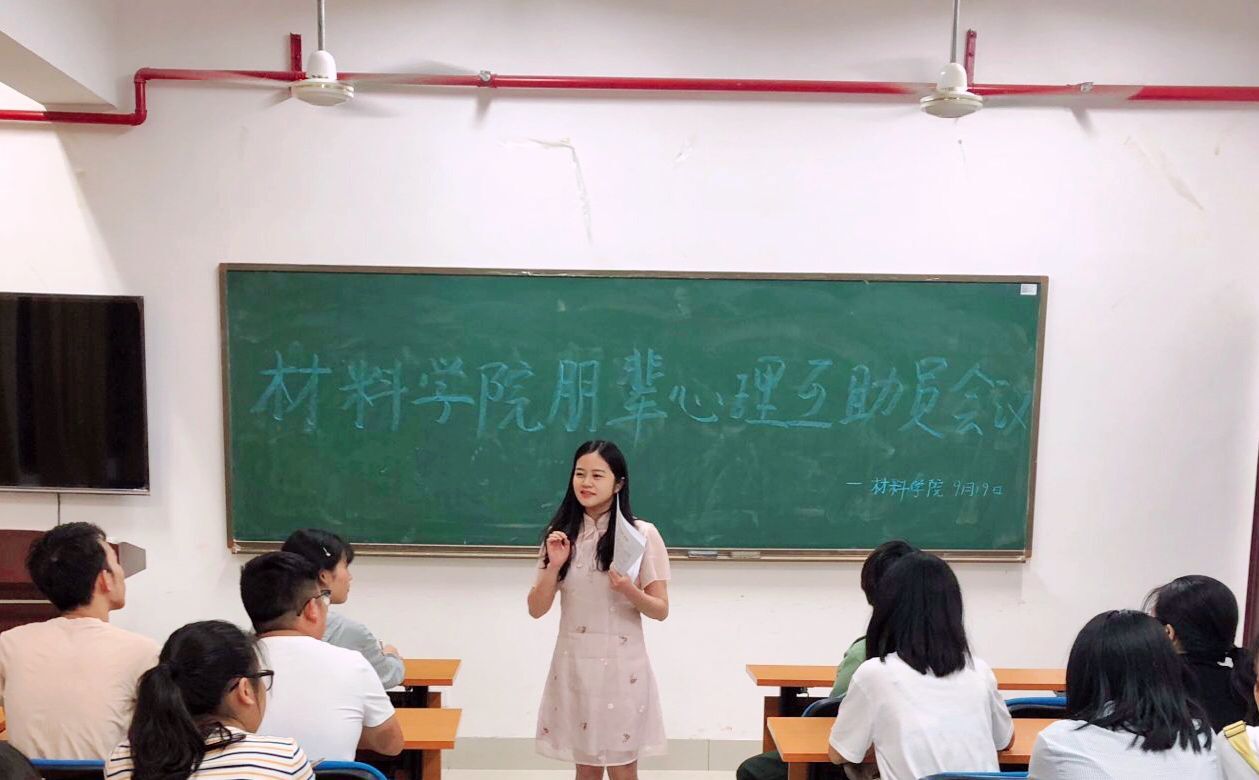 材料学院朋辈心理互助员会议
—材料学院 9月19日